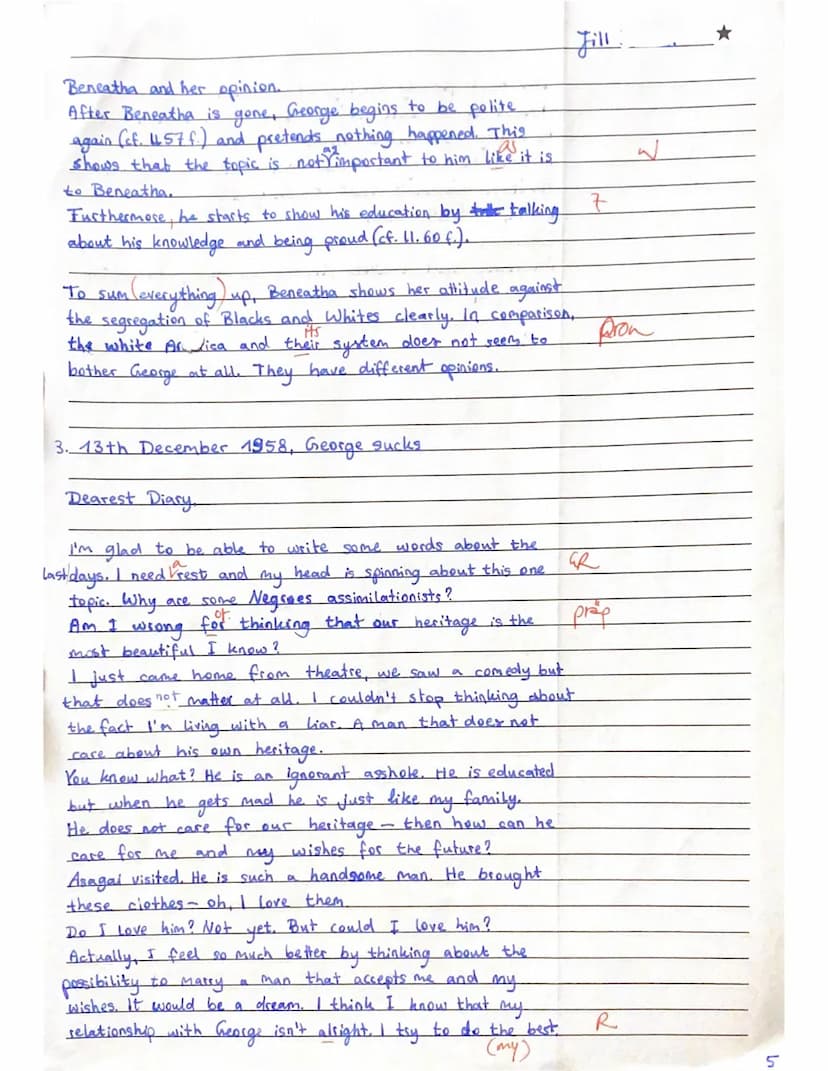 Jill
Beneatha and her opinion.
After Beneatha is gone, George begins to be polite
again (cf. ll. 57 f.) and pretends nothing happened. This
as as
shows that the topic is not important to him like it is W
to Beneatha.
Furthermore, he starts to show his education by talking 7
about his knowledge and being proud (cf. ll. 60 f.).
To sum (everything) up, Beneatha shows her attitude against
the segregation of Blacks and Whites clearly. In comparison,
its
the white and their system does not seem to Pron
bother George at all. They have different opinions.
3. 13th December 1958, George sucks
Dearest Diary,
I'm glad to be able to write some words about the
a
last days. I need rest and my head is spinning about this one GR
topic. Why are some Negroes assimilationists?
of
Am I wrong for thinking that our heritage is the präp
most beautiful I know?
I just came home from theatre, we saw a comedy but
that does not matter at all. I couldn't stop thinking about
the fact I'm living with a liar. A man that does not
care about his own heritage.
You know what? He is an ignorant asshole. He is educated
but when he gets mad he is just like my family.
He does not care for our heritage – then how can he
care for me and my wishes for the future?
Asagai visited. He is such a handsome man. He brought
these clothes – oh, I love them.
Do I love him? Not yet. But could I love him?
Actually, I feel so much better by thinking about the
possibility to marry a man that accepts me and my
wishes. It would be a dream. I think I know that my
relationship with George isn't alright. I try to do the best, R
(my)
5